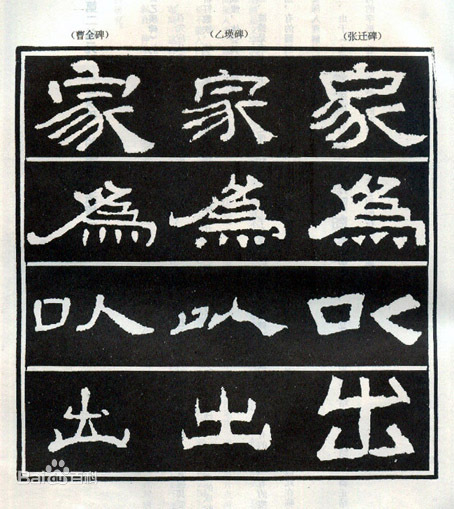 (曹全碑) (乙瑛碑) (张迁碑)
家 家 家
為 為 為
以 以 以
出 出 出
Baidu百科